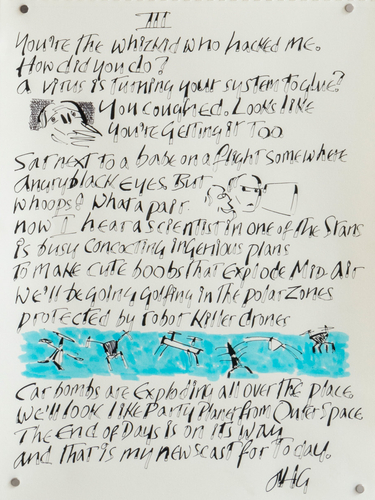 III
You're the whizkid who hacked me.
How did you do?
A virus is turning your system to glue?
You coughed. Looks like
you're getting it too.
Sat next to a babe on a flight somewhere
Angry black eyes. But
whoops! What a pair
now I hear a scientist in one of the Stans
is busy concocting ingenious plans
to make cute boobs that explode Mid-Air
We'll be going golfing in the polar zones
protected by robot killer drones
Car bombs are exploding all over the place.
We'll look like Party Planet from Outer Space
The End of Days is on its way
and that is my newscast for today.